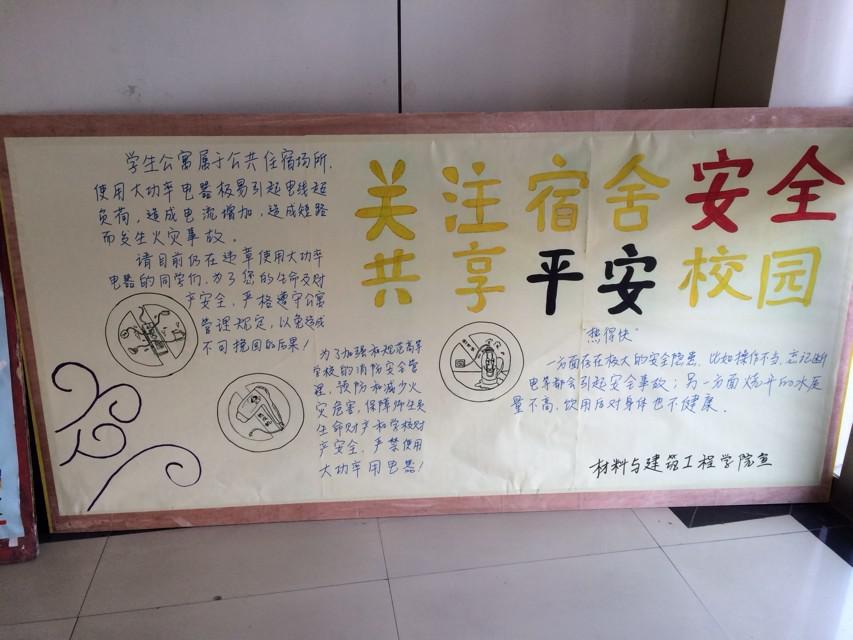 关注宿舍安全
共享平安校园
学生公寓属于公共住宿场所,
使用大功率电器极易引起电线超
负荷,造成电流增加,造成短路
而发生火灾事故。
请目前仍在违章使用大功率
电器的同学们,为了您的生命及财
产安全,严格遵守公寓
管理规定,以免造成
不可挽回的后果!
为了加强和规范高等
学校的消防安全管
理,预防和减少火
灾危害,保障师生员
生命财产和学校财
产安全,严禁使用
大功率用电器!
"热得快"
一方面存在极大的安全隐患,比如操作不当,忘记断
电等都会引起安全事故;另一方面烧开的水质
量不高,饮用后对身体也不健康。
材料与建筑工程学院宣